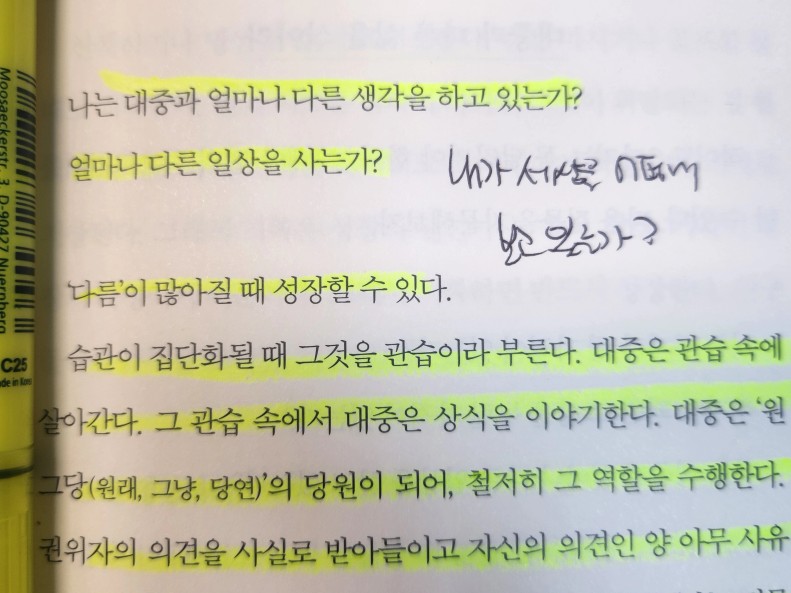 나는 대중과 얼마나 다른 생각을 하고 있는가?
얼마나 다른 일상을 사는가?
내가 세상을
보고 있는가?
'다름'이 많아질 때 성장할 수 있다.
습관이 집단화될 때 그것을 관습이라 부른다. 대중은 관습 속에
살아간다. 그 관습 속에서 대중은 상식을 이야기한다. 대중은 '원
그당(원래, 그냥, 당연)'의 당원이 되어, 철저히 그 역할을 수행한다.
권위자의 의견을 사실로 받아들이고 자신의 의견인 양 아무 사유
Moosaeckerstr. 3, D-90427 Nuernberg
C25
de in Korea